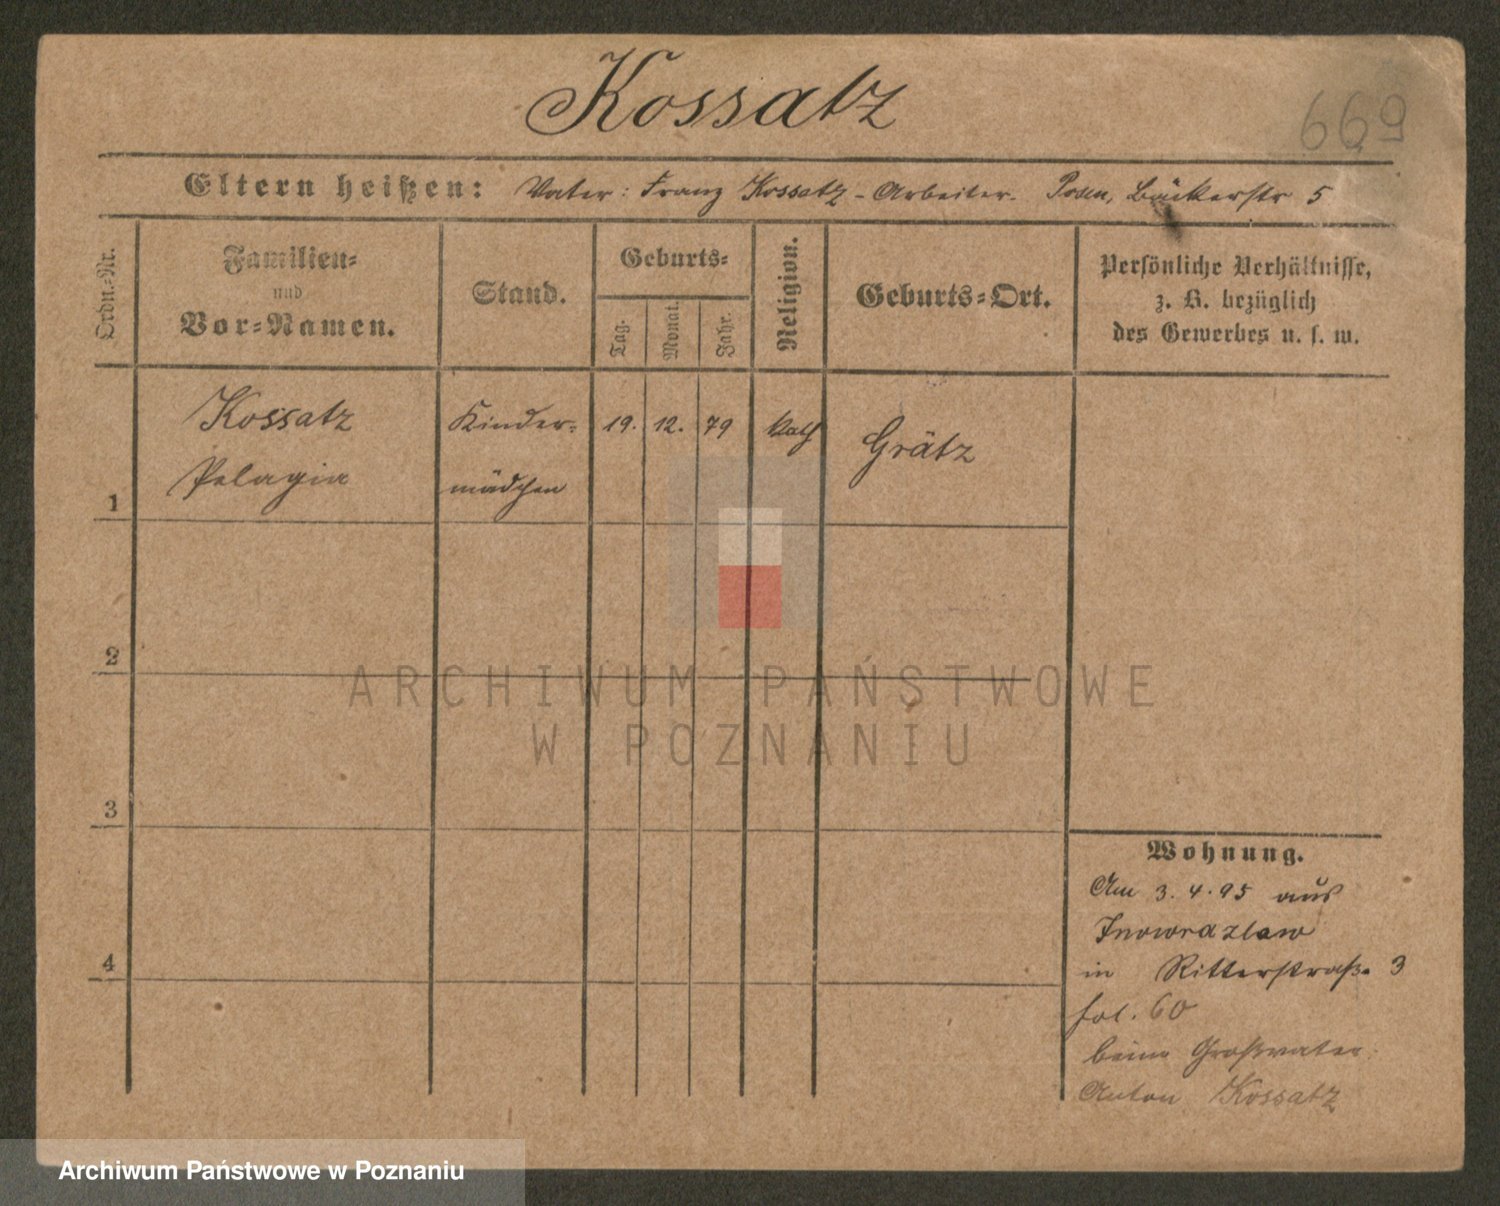 Kossatz
669
Eltern heißen: Vater: Franz Kossatz - Arbeiter. Posen, Bäckerstr 5
Ordn.-Nr.
Familien-
und
Vor-Namen.
Stand.
Geburts-
Tag.
Monat.
Jahr.
Religion.
Geburts-Ort.
Persönliche Verhältnisse,
z. B. bezüglich
des Gewerbes u. s. w.
1
Kossatz
Pelagia
Kinder-
mädchen
19. 12. 79
kath
Grätz
2
3
4
Wohnung.
Am 3.4.95 aus
Inowrazlaw
in Ritterstraße 3
fol. 60
beim Großvater
Anton Kossatz
ARCHIWUM PAŃSTWOWE
W POZNANIU
Archiwum Państwowe w Poznaniu